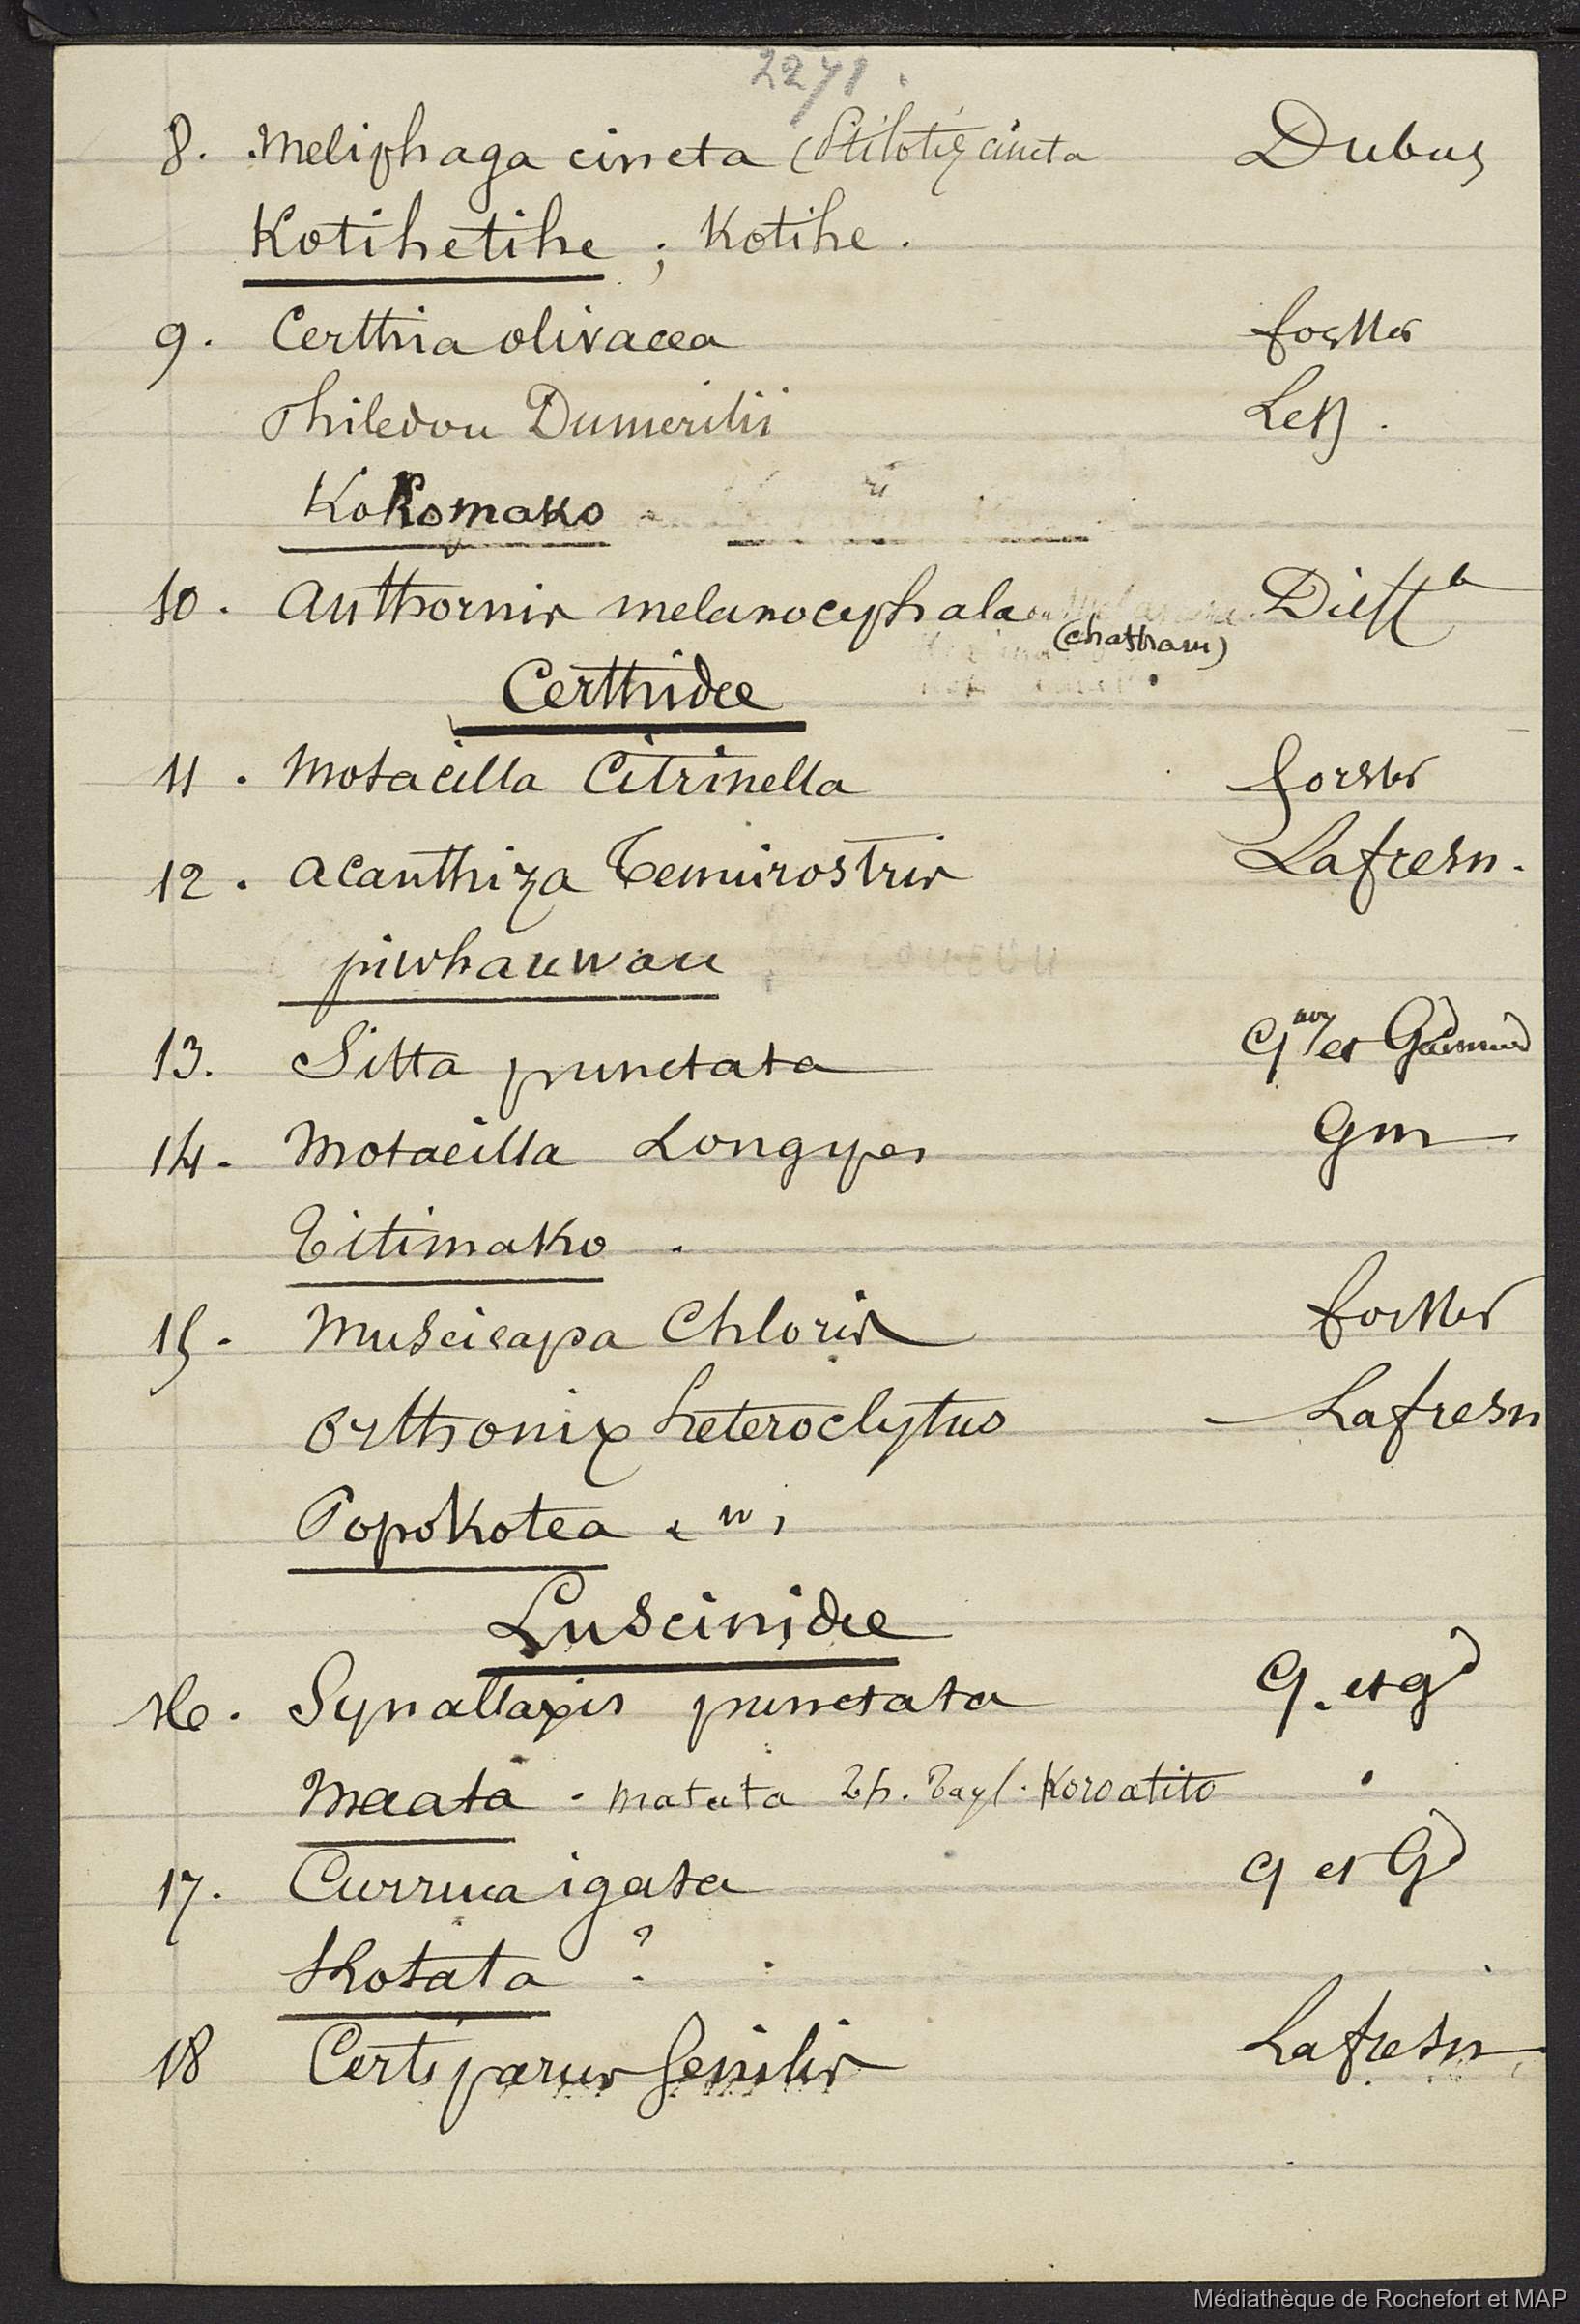 2271.
8. Meliphaga cincta (Ptilotis cincta Dubus
Kotihetihe ; Kotihe.
9. Certhia olivacea forster
Philedon Dumerilii Less.
Kokomako
10. Anthornis melanocephala Dieff
(Chatham)
Certhidæ
11. Motacilla Citrinella forster
12. acanthiza tenuirostris Lafresn.
piwhauwau
13. Sitta punctata Quoy et Gaimard
14. Motacilla Longipes Gm
Titimako.
15. Muscicapa Chloris forster
Orthonix heteroclytus Lafresn
Popokotea
Luscinidæ
16. Synallaxis punctata Q. et gd
Maata. matata Th. Tayl. Koroatito
17. Curruca igata Q et Gd
Kotata ?
18 Certiparus Senilis Lafresn
Médiathèque de Rochefort et MAP